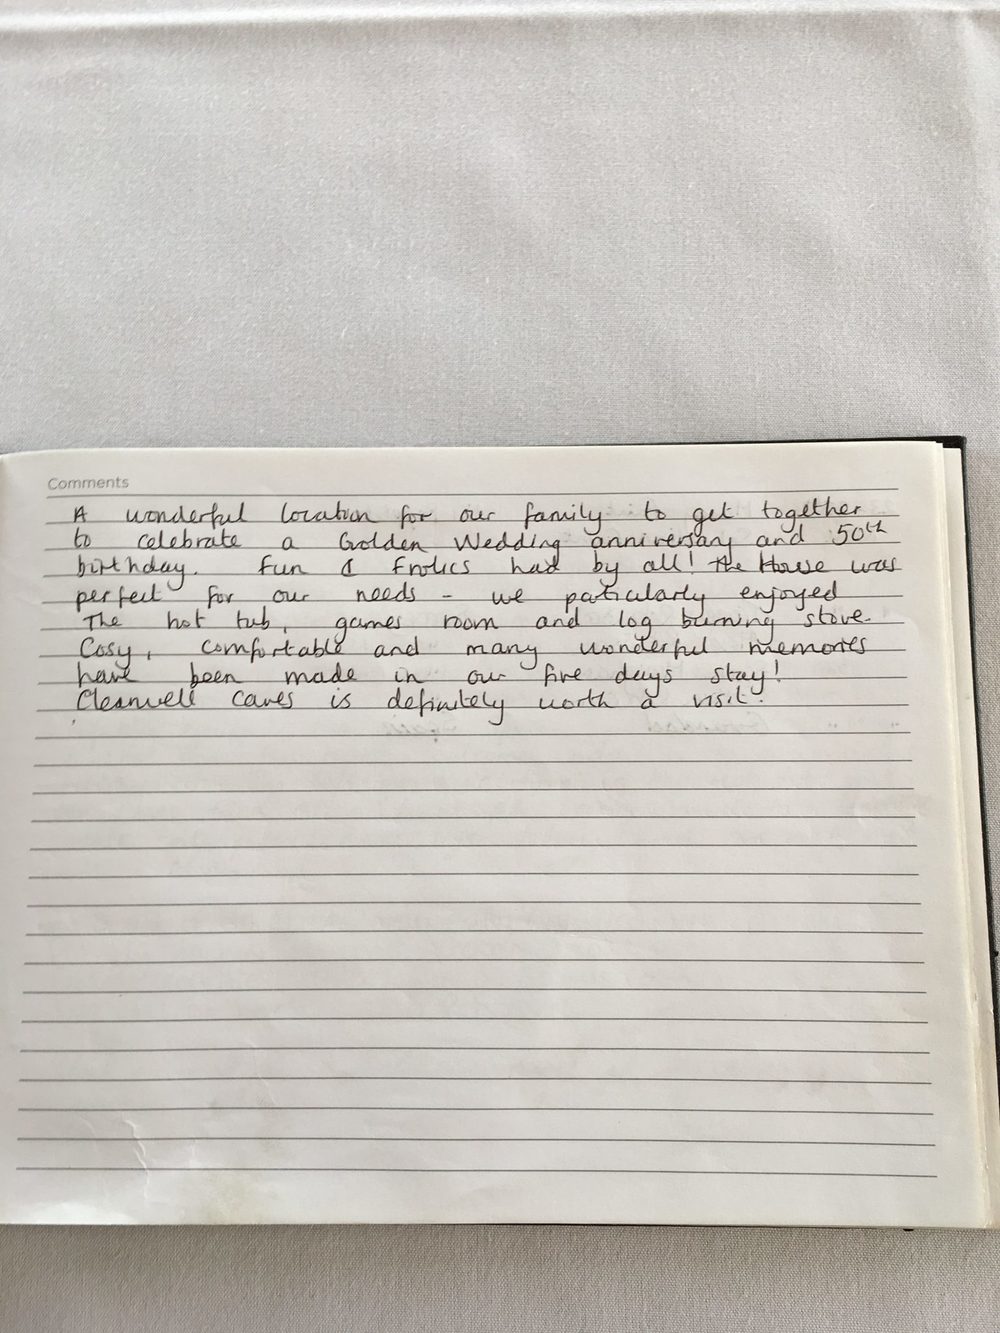 Comments
A wonderful location for our family to get together
to celebrate a Golden Wedding anniversary and 50th
birthday. Fun & Frolics had by all! The House was
perfect for our needs - we paticularly enjoyed
The hot tub, games room and log burning stove.
Cosy, comfortable and many wonderful memories
have been made in our five days stay!
Clearwell Caves is definitely worth a visit!